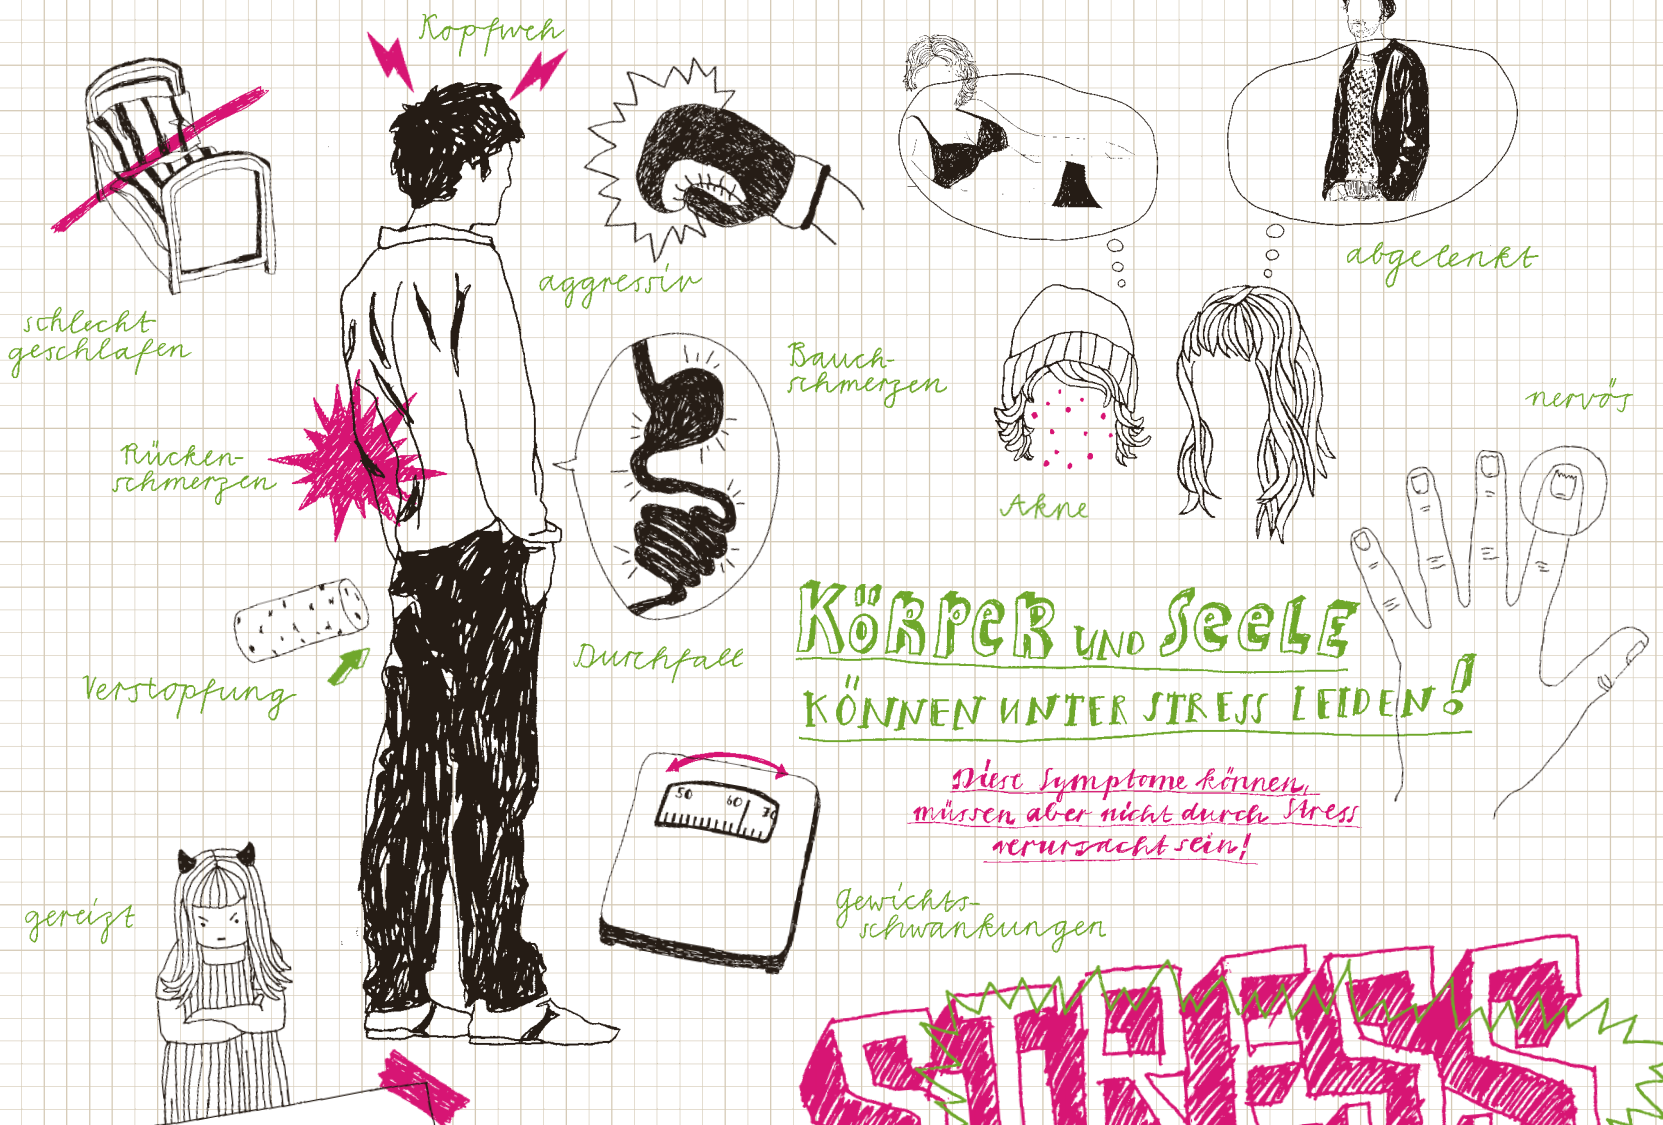 Kopfweh
schlecht
geschlafen
aggressiv
abgelenkt
Bauch-
schmerzen
nervös
Rücken-
schmerzen
Akne
Verstopfung
Durchfall
KÖRPER UND SEELE
KÖNNEN UNTER STRESS LEIDEN!
Diese Symptome können,
müssen aber nicht durch Stress
verursacht sein!
50 60 70
gereizt
Gewichts-
schwankungen
STRESS